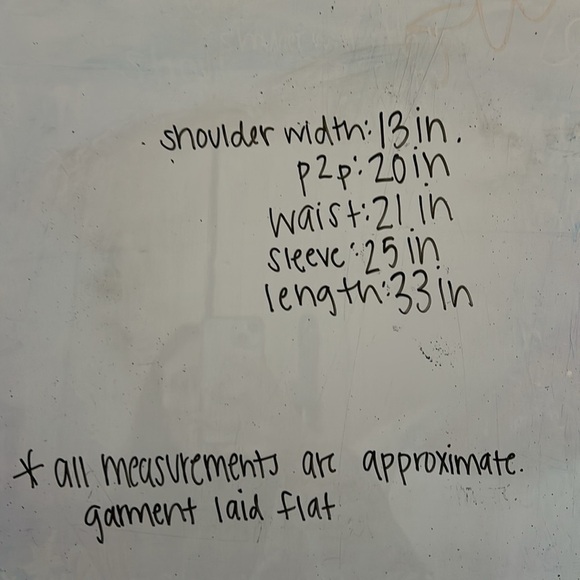 shoulder width: 13 in.
p2p: 20 in
waist: 21 in
sleeve: 25 in
length: 33 in
* all measurements are approximate.
garment laid flat